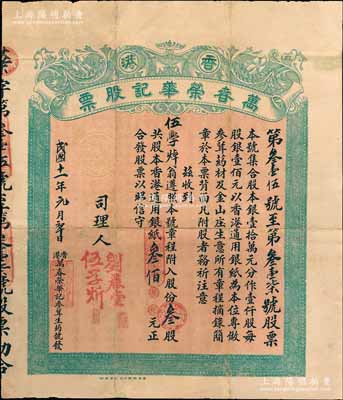 上海阳明拍卖
香港
萬春榮華記股票
第叁壹伍號至第叁壹柒號股票
本號集合股本銀壹拾萬元分作壹仟股每
股銀壹佰元以香港通用銀紙為本位專做
參茸葯材及金山庄生意所有章程摘錄簡
章於本票背面凡附股者務祈注意
茲收到
伍學焯翁遵照本號章程附入股份叁股
共股本香港通用銀紙叁佰元正
合發股票以昭信守
司理人
民國十一年元月
香港萬春榮華記參茸生葯號發